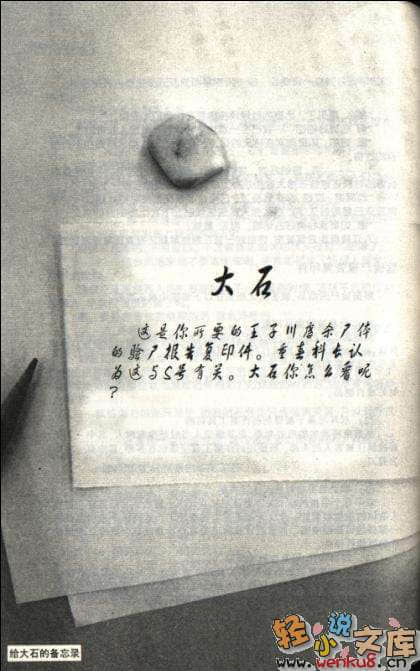 大石
这是你所要的王子川唐奈尸体
的验尸报告复印件。垂直科长认
为这与S号有关。大石你怎么看呢
?
给大石的备忘录
轻小说文库
www.wenku8.cn